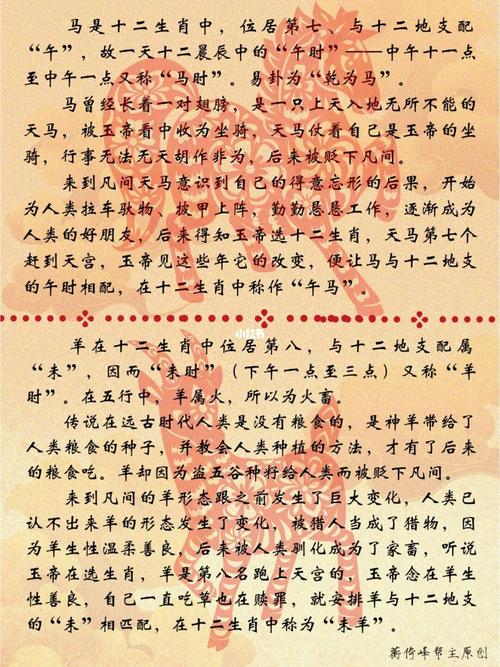 马是十二生肖中，位居第七、与十二地支配
“午”，故一天十二晨辰中的“午时”——中午十一点
至中午一点又称“马时”。易卦为“乾为马”。
马曾经长着一对翅膀，是一只上天入地无所不能的
天马，被玉帝看中收为坐骑，天马仗着自己是玉帝的坐
骑，行事无法无天胡作非为，后来被贬下凡间。
来到凡间天马意识到自己的得意忘形的后果，开始
为人类拉车驮物、披甲上阵，勤勤恳恳工作，逐渐成为
人类的好朋友，后来得知玉帝选十二生肖，天马第七个
赶到天宫，玉帝见这些年它的改变，便让马与十二地支
的午时相配，在十二生肖中称作“午马”。
小红书
羊在十二生肖中位居第八，与十二地支配属
“未”，因而“未时”（下午一点至三点）又称“羊
时”。在五行中，羊属火，所以为火畜。
传说在远古时代人类是没有粮食的，是神羊带给了
人类粮食的种子，并教会人类种植的方法，才有了后来
的粮食吃。羊却因为盗五谷种籽给人类而被贬下凡间。
来到凡间的羊形态跟之前发生了巨大变化，人类已
认不出来羊的形态发生了变化，被猎人当成了猎物，因
为羊生性温柔善良，后来被人类驯化成为了家畜，听说
玉帝在选生肖，羊是第八名跑上天宫的，玉帝念在羊生
性善良，自己一直吃草也在赎罪，就安排羊与十二地支
的“未”相匹配，在十二生肖中称为“未羊”。
蒋倚峰帮主原创